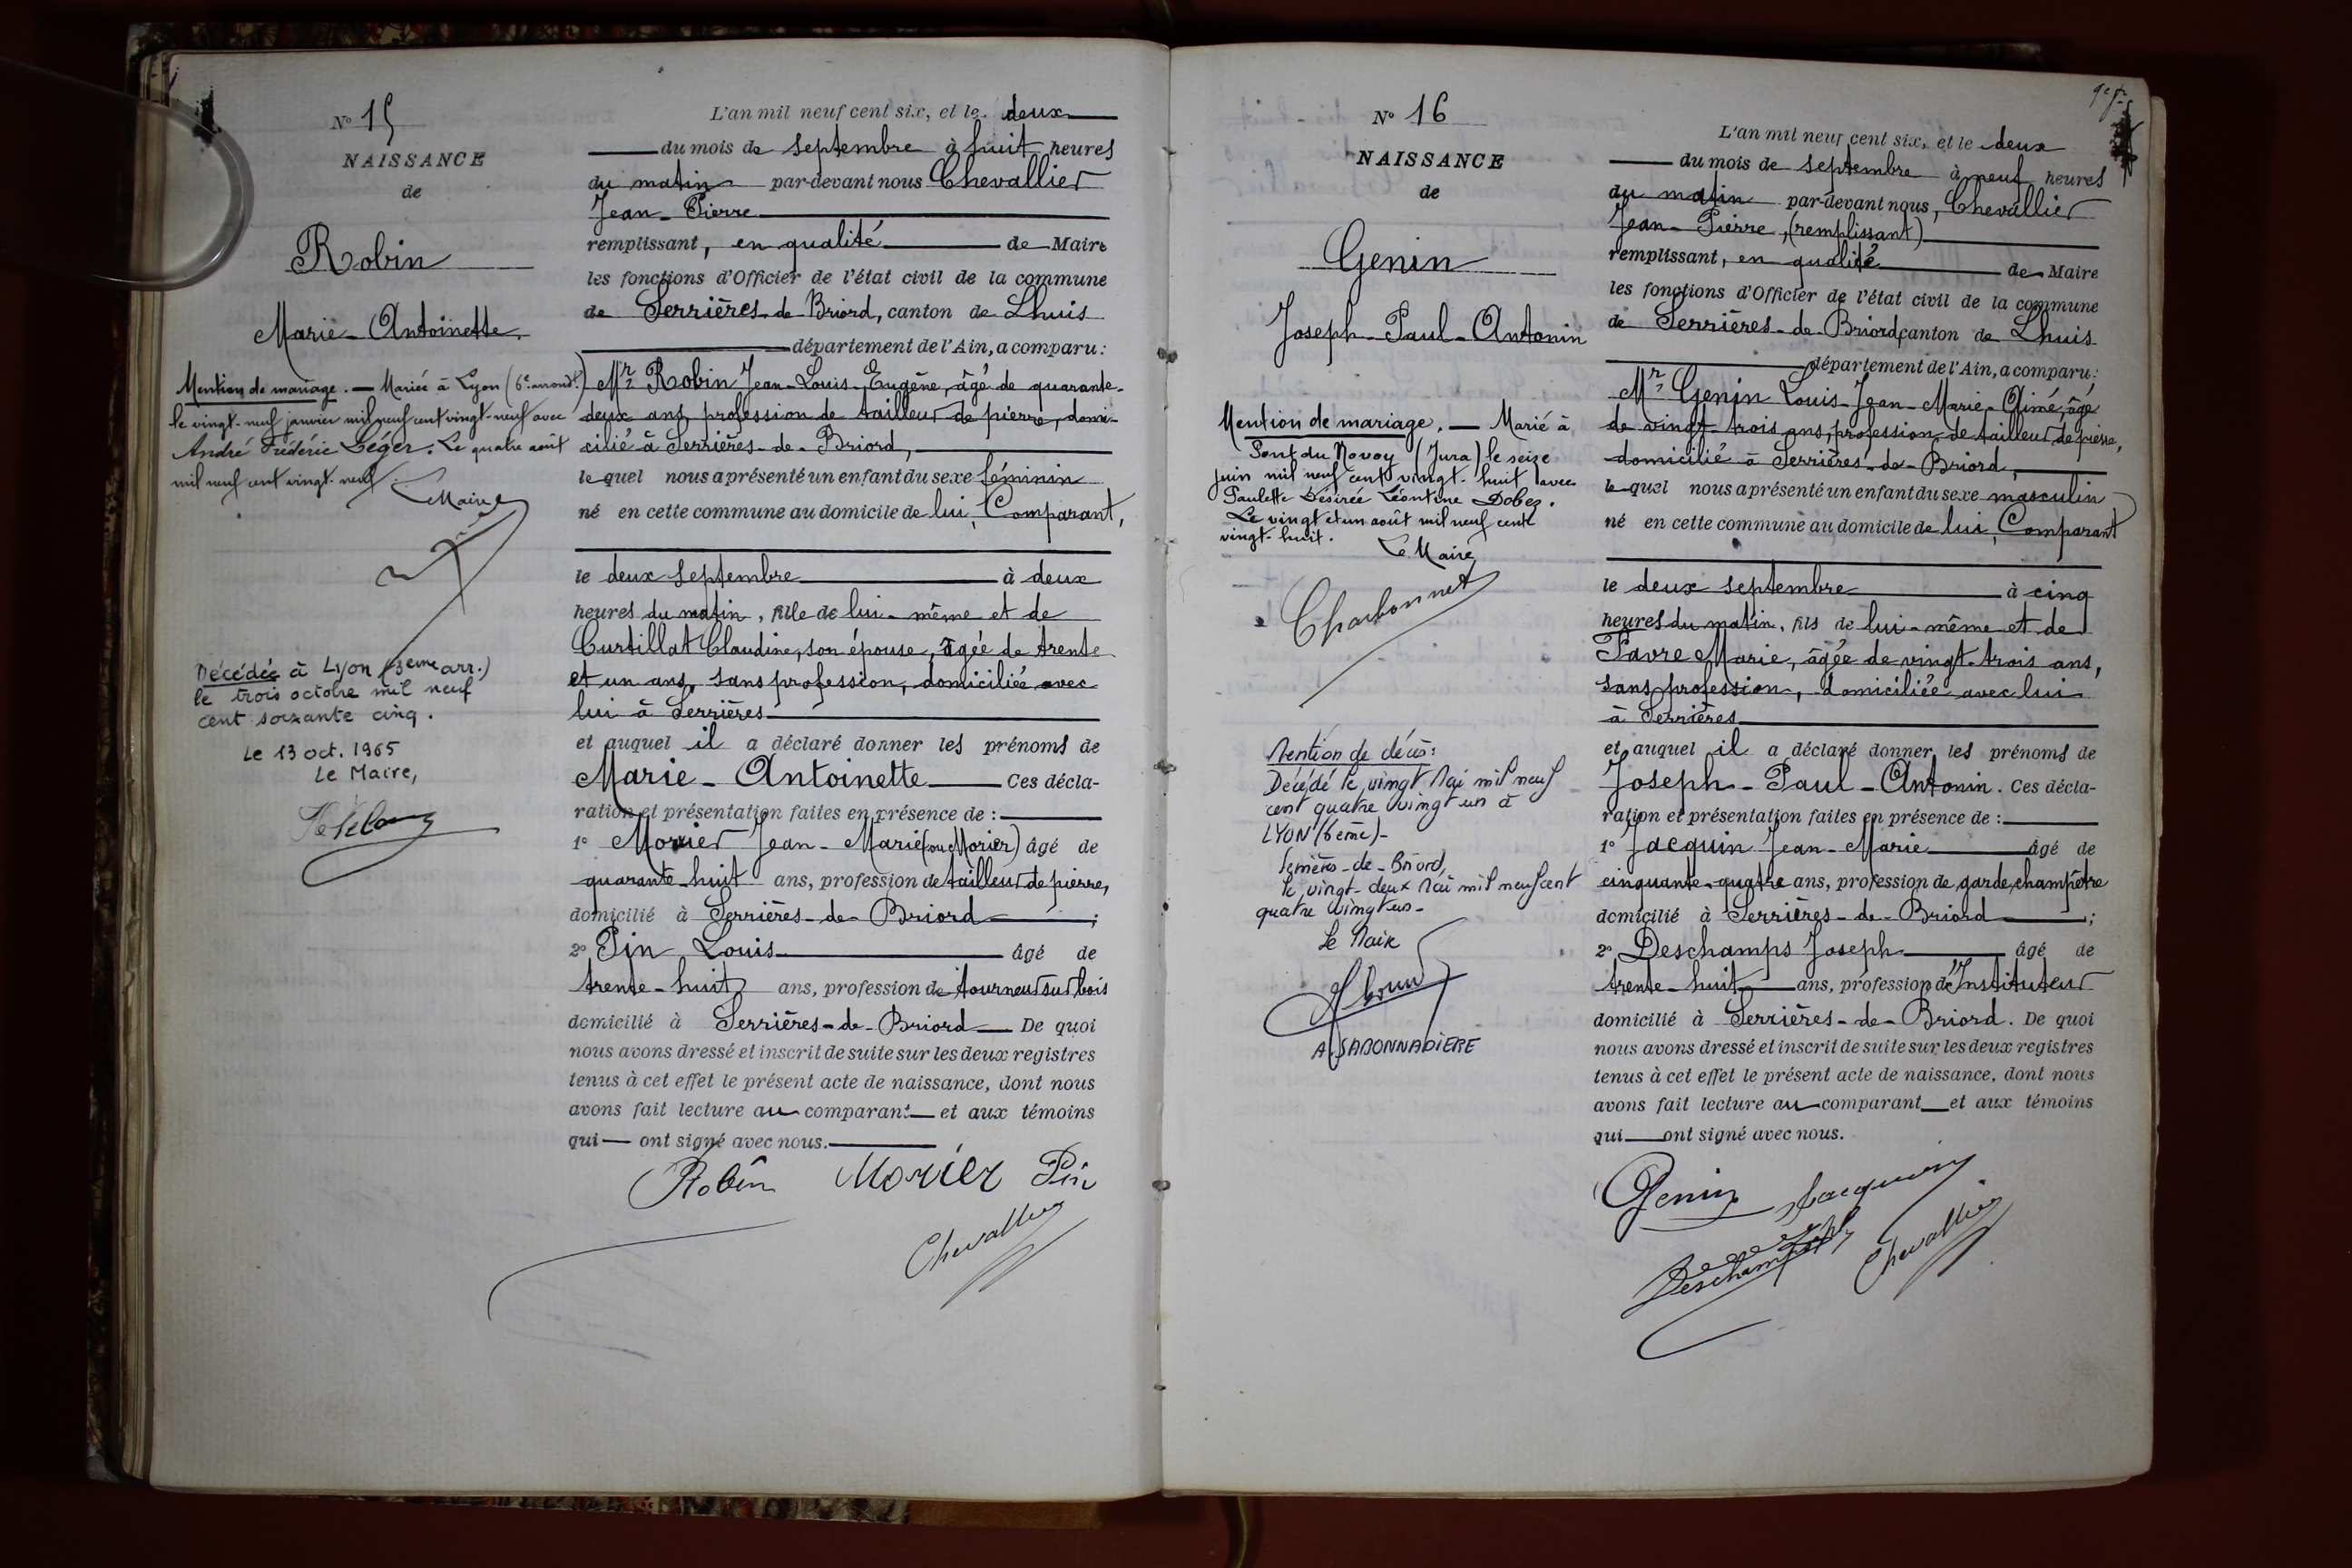 N° 15
NAISSANCE
de
Robin
Marie-Antoinette.
Mention de mariage. — Mariée à Lyon (6e arrondt.)
le vingt-neuf janvier mil neuf cent vingt-neuf avec
André Frédéric Léger. Le quatre août
mil neuf cent vingt-neuf.
Le Maire
Décédée à Lyon (3eme arr.)
le trois octobre mil neuf
cent soixante cinq.
Le 13 oct. 1965
Le Maire,
L'an mil neuf cent six, et le deux
du mois de septembre à huit heures
du matin par-devant nous Chevallier
Jean-Pierre
remplissant, en qualité de Maire
les fonctions d'Officier de l'état civil de la commune
de Serrières-de-Briord, canton de Lhuis
département de l'Ain, a comparu :
Mr Robin Jean-Louis-Eugène, âgé de quarante-
deux ans, profession de tailleur de pierre, domi-
cilié à Serrières-de-Briord,
lequel nous a présenté un enfant du sexe féminin
né en cette commune au domicile de lui, Comparant,
le deux septembre à deux
heures du matin, fille de lui-même et de
Curtillat Claudine, son épouse, âgée de trente
et un ans, sans profession, domiciliée avec
lui à Serrières
et auquel il a déclaré donner les prénoms de
Marie-Antoinette Ces décla-
ration et présentation faites en présence de :
1° Morier Jean-Marie (ou Morier) âgé de
quarante-huit ans, profession de tailleur de pierre,
domicilié à Serrières-de-Briord ;
2° Pin Louis âgé de
trente-huit ans, profession de tourneur sur bois
domicilié à Serrières-de-Briord De quoi
nous avons dressé et inscrit de suite sur les deux registres
tenus à cet effet le présent acte de naissance, dont nous
avons fait lecture au comparant et aux témoins
qui ont signé avec nous.
Robin Morier Pin
Chevallier
N° 16
NAISSANCE
de
Genin
Joseph-Paul-Antonin
Mention de mariage. — Marié à
Pont du Navoy (Jura) le seize
juin mil neuf cent vingt-huit avec
Paulette Désirée Léontine Dobez.
Le vingt et un août mil neuf cent
vingt-huit.
Le Maire
Charbonnet
Mention de décès :
Décédé le vingt Mai mil neuf
cent quatre vingt un à
LYON (6ème)-
Serrières-de-Briord,
le vingt-deux Mai mil neuf cent
quatre vingt un-
Le Maire
A. SABONNADIERE
L'an mil neuf cent six, et le deux
du mois de septembre à neuf heures
du matin par-devant nous, Chevallier
Jean-Pierre, (remplissant)
remplissant, en qualité de Maire
les fonctions d'Officier de l'état civil de la commune
de Serrières-de-Briord, canton de Lhuis
département de l'Ain, a comparu :
Mr Genin Louis-Jean-Marie-Aimé, âgé
de vingt-trois ans, profession de tailleur de pierre,
domicilié à Serrières-de-Briord,
lequel nous a présenté un enfant du sexe masculin
né en cette commune au domicile de lui, Comparant
le deux septembre à cinq
heures du matin, fils de lui-même et de
Favre Marie, âgée de vingt-trois ans,
sans profession, domiciliée avec lui
à Serrières
et auquel il a déclaré donner les prénoms de
Joseph-Paul-Antonin. Ces décla-
ration et présentation faites en présence de :
1° Jacquin Jean-Marie âgé de
cinquante-quatre ans, profession de garde champêtre
domicilié à Serrières-de-Briord ;
2° Deschamps Joseph âgé de
trente-huit ans, profession d'Instituteur
domicilié à Serrières-de-Briord. De quoi
nous avons dressé et inscrit de suite sur les deux registres
tenus à cet effet le présent acte de naissance, dont nous
avons fait lecture au comparant et aux témoins
qui ont signé avec nous.
Genin Jacquin
Deschamps Chevallier